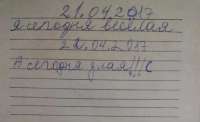 21.04.2017
я сегодня весёлая
22.04.2017
А сегодня злая!!!